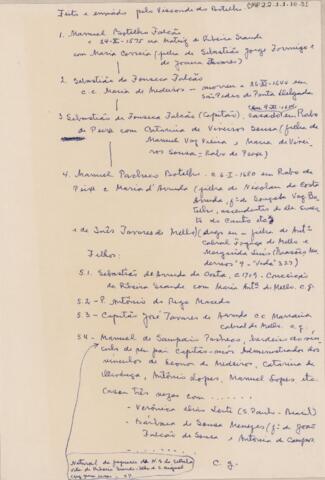 Feito e enviado pelo Visconde do Botelho
1. Manuel Botelho Falcão
c. 24-XI-1575 na Matriz da Ribeira Grande
com Maria Correia (filha de Sebastião Jorge Formigo e
de Joana Tavares)
2. Sebastião da Fonseca Falcão
c.c. Maria de Medeiros - morreu a 26 XI-1644 em
São Pedro de Ponta Delgada
3. Sebastião da Fonseca Falcão (Capitão), casado em Rabo
de Peixe com Catarina de Viveiros Sousa (filha de
Manuel Vaz e Maria de Vivei-
ros Sousa - Rabo de Peixe)
4. Manuel Pacheco Botelho - c. 6-I-1680 em Rabo de
Peixe c Maria d'Arruda (filha de Nicolau da Costa
Arruda, fº de Gonçalo Vaz Bo-
telho, ascendentes de
to do Canto etc)
e de Inês Tavares de Mello) (filha de Antº
Cabral de Mello e
Margarida Luis
Filhos:
5.1. Sebastião de Arruda da Costa, c. 1709 - Conceição
da Ribeira Grande com Maria Antª de Mello. c.g.
5.2 - P. António do Rego Macedo
5.3 - Capitão José Tavares de Arruda c.c Mariana
Cabral de Mello. c.g.
5.4 - Manuel de Sampaio Pacheco, herdeiro dos vín-
culos de seu pai Capitão-mor. Administrador dos
vínculos de de Medeiros, Catarina de
António Lopes, Manuel Lopes etc.
Casou três vezes com .......
- Verónica Dias Leite (S. Paulo - Brasil)
- Bárbara de Sousa Menezes (fª de João
Falcão de Sousa e Antónia de Campos
Natural da freguesia de N. S. da Estrela
vila da Ribeira Grande - Ilha de S. Miguel
c. g.